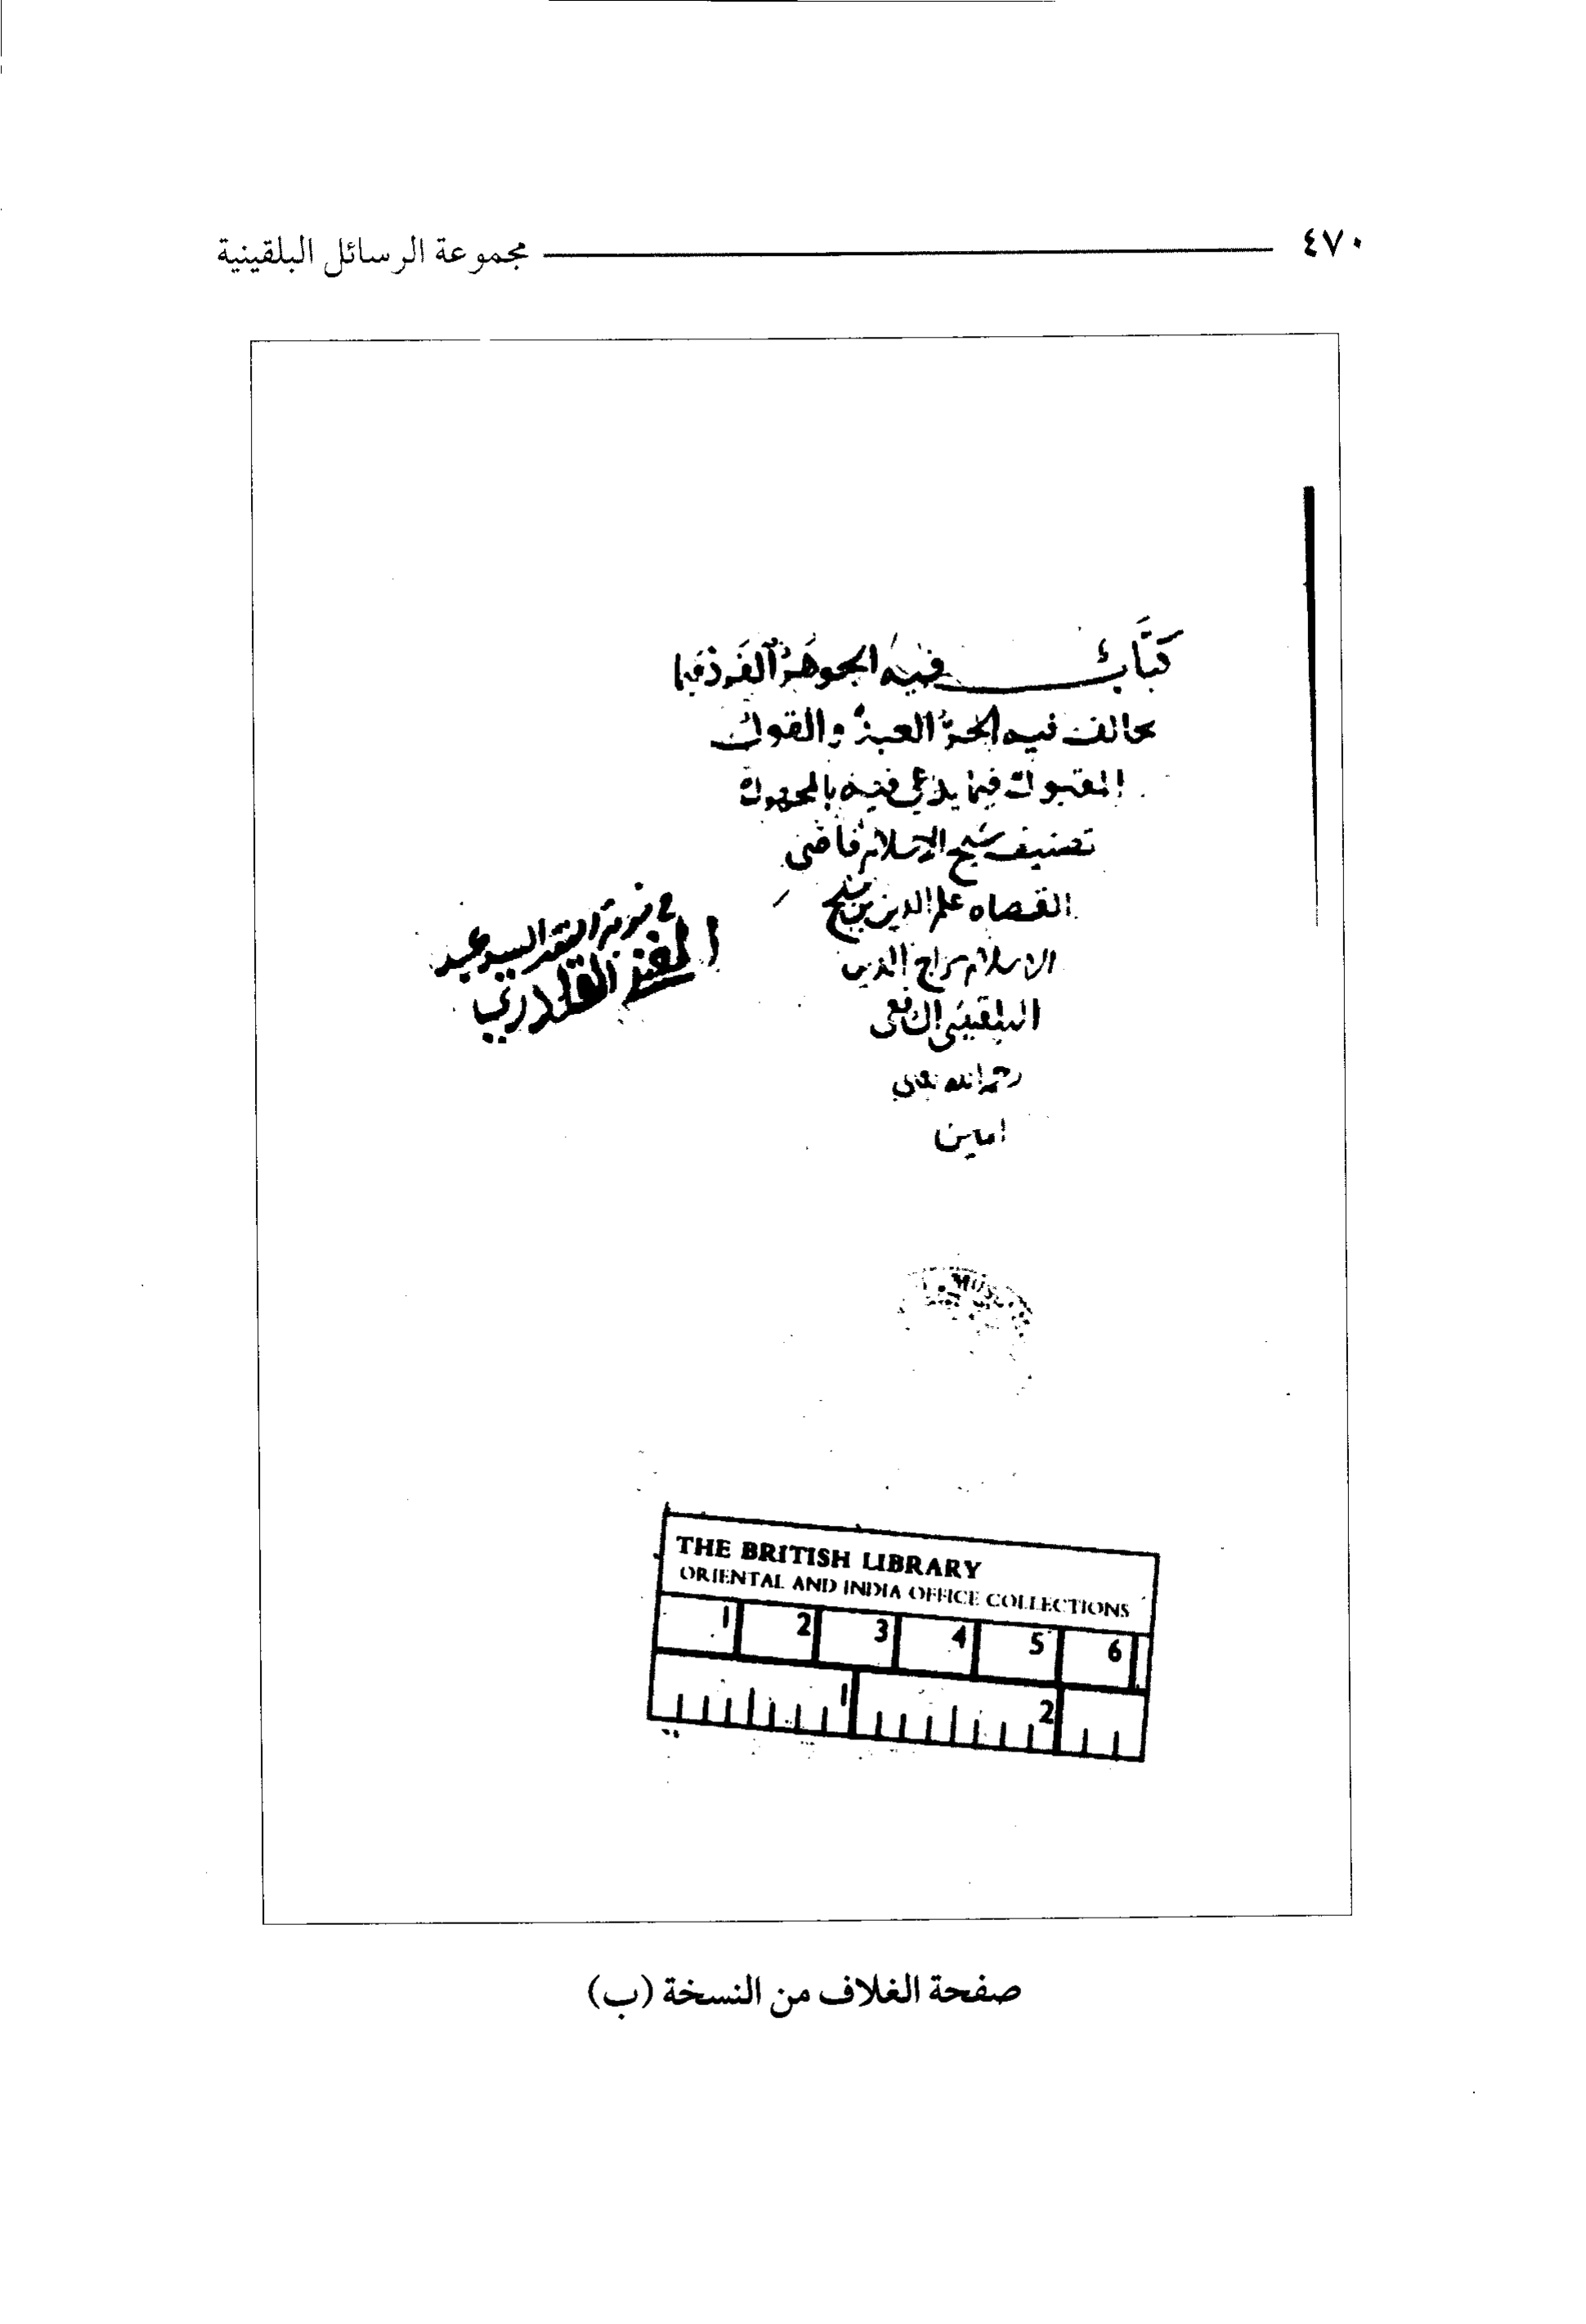 ٤٧٠ مجموعة الرسائل البلقينية
كتاب فيه الجوهر الفرد فيما
يخالف فيه الحر العبد والقول
المقبول فيما يدعى فيه بالمجهول
تصنيف شيخ الاسلام قاضى
القضاه علم الدين بن شيخ
الاسلام سراج الدين
البلقينى الشافعى
رحمه الله تعالى
امين
في نوبة الفقير السيد عبد
الغني القادري
THE BRITISH LIBRARY
ORIENTAL AND INDIA OFFICE COLLECTIONS
1 2 3 4 5 6
1 2
صفحة الغلاف من النسخة (ب)